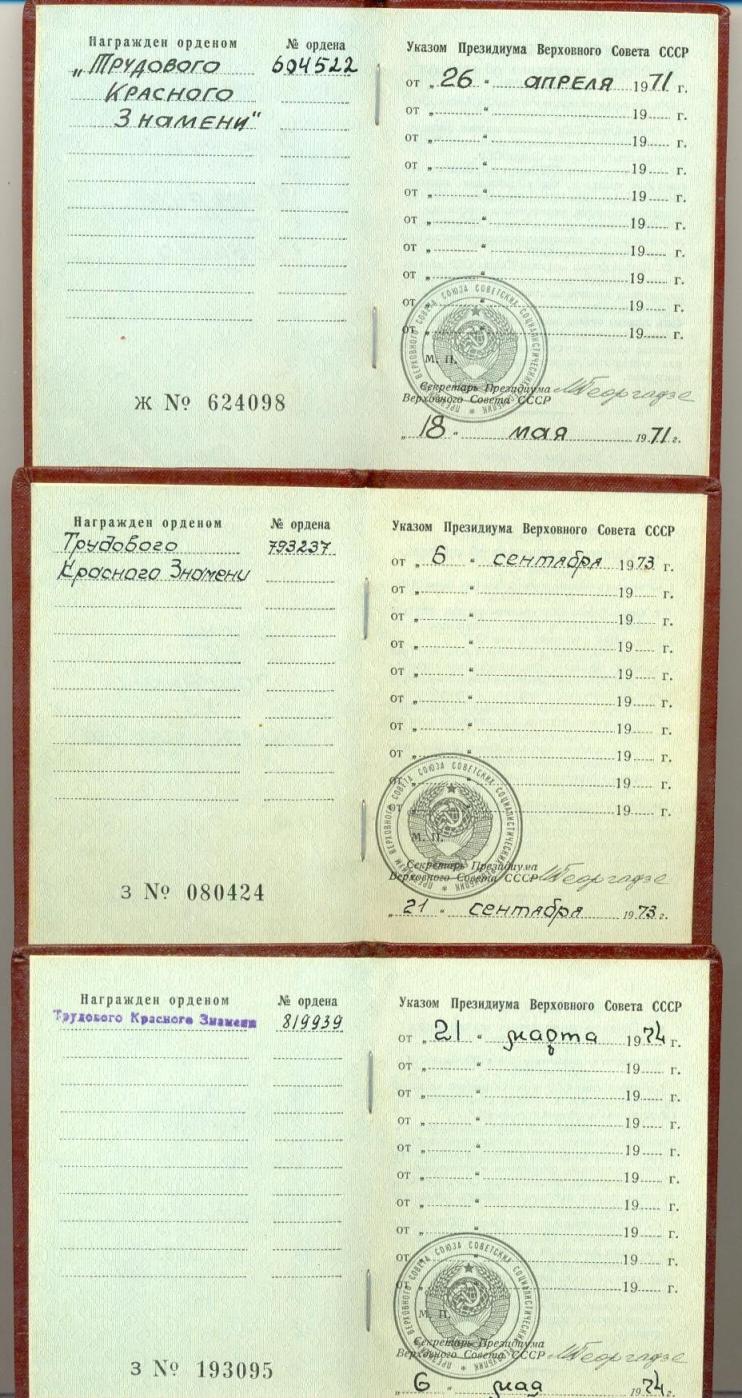 Награжден орденом № ордена
„Трудового 604522
Красного
Знамени"
Ж № 624098
Указом Президиума Верховного Совета СССР
от „26" апреля 1971 г.
от „ " 19 г.
от „ " 19 г.
от „ " 19 г.
от „ " 19 г.
от „ " 19 г.
от „ " 19 г.
от „ " 19 г.
от „ " 19 г.
от „ " 19 г.
ПРЕЗИДИУМ ВЕРХОВНОГО СОВЕТА СОЮЗА СОВЕТСКИХ СОЦИАЛИСТИЧЕСКИХ РЕСПУБЛИК
М. П.
Секретарь Президиума
Верховного Совета СССР МГеоргадзе
„18" мая 1971 г.
Награжден орденом № ордена
Трудового 793237
Красного Знамени
З № 080424
Указом Президиума Верховного Совета СССР
от „6" сентября 1973 г.
от „ " 19 г.
от „ " 19 г.
от „ " 19 г.
от „ " 19 г.
от „ " 19 г.
от „ " 19 г.
от „ " 19 г.
от „ " 19 г.
от „ " 19 г.
ПРЕЗИДИУМ ВЕРХОВНОГО СОВЕТА СОЮЗА СОВЕТСКИХ СОЦИАЛИСТИЧЕСКИХ РЕСПУБЛИК
М. П.
Секретарь Президиума
Верховного Совета СССР МГеоргадзе
„21" сентября 1973 г.
Награжден орденом № ордена
Трудового Красного Знамени 819939
З № 193095
Указом Президиума Верховного Совета СССР
от „21" марта 1974 г.
от „ " 19 г.
от „ " 19 г.
от „ " 19 г.
от „ " 19 г.
от „ " 19 г.
от „ " 19 г.
от „ " 19 г.
от „ " 19 г.
от „ " 19 г.
ПРЕЗИДИУМ ВЕРХОВНОГО СОВЕТА СОЮЗА СОВЕТСКИХ СОЦИАЛИСТИЧЕСКИХ РЕСПУБЛИК
М. П.
Секретарь Президиума
Верховного Совета СССР МГеоргадзе
„6" мая 1974 г.